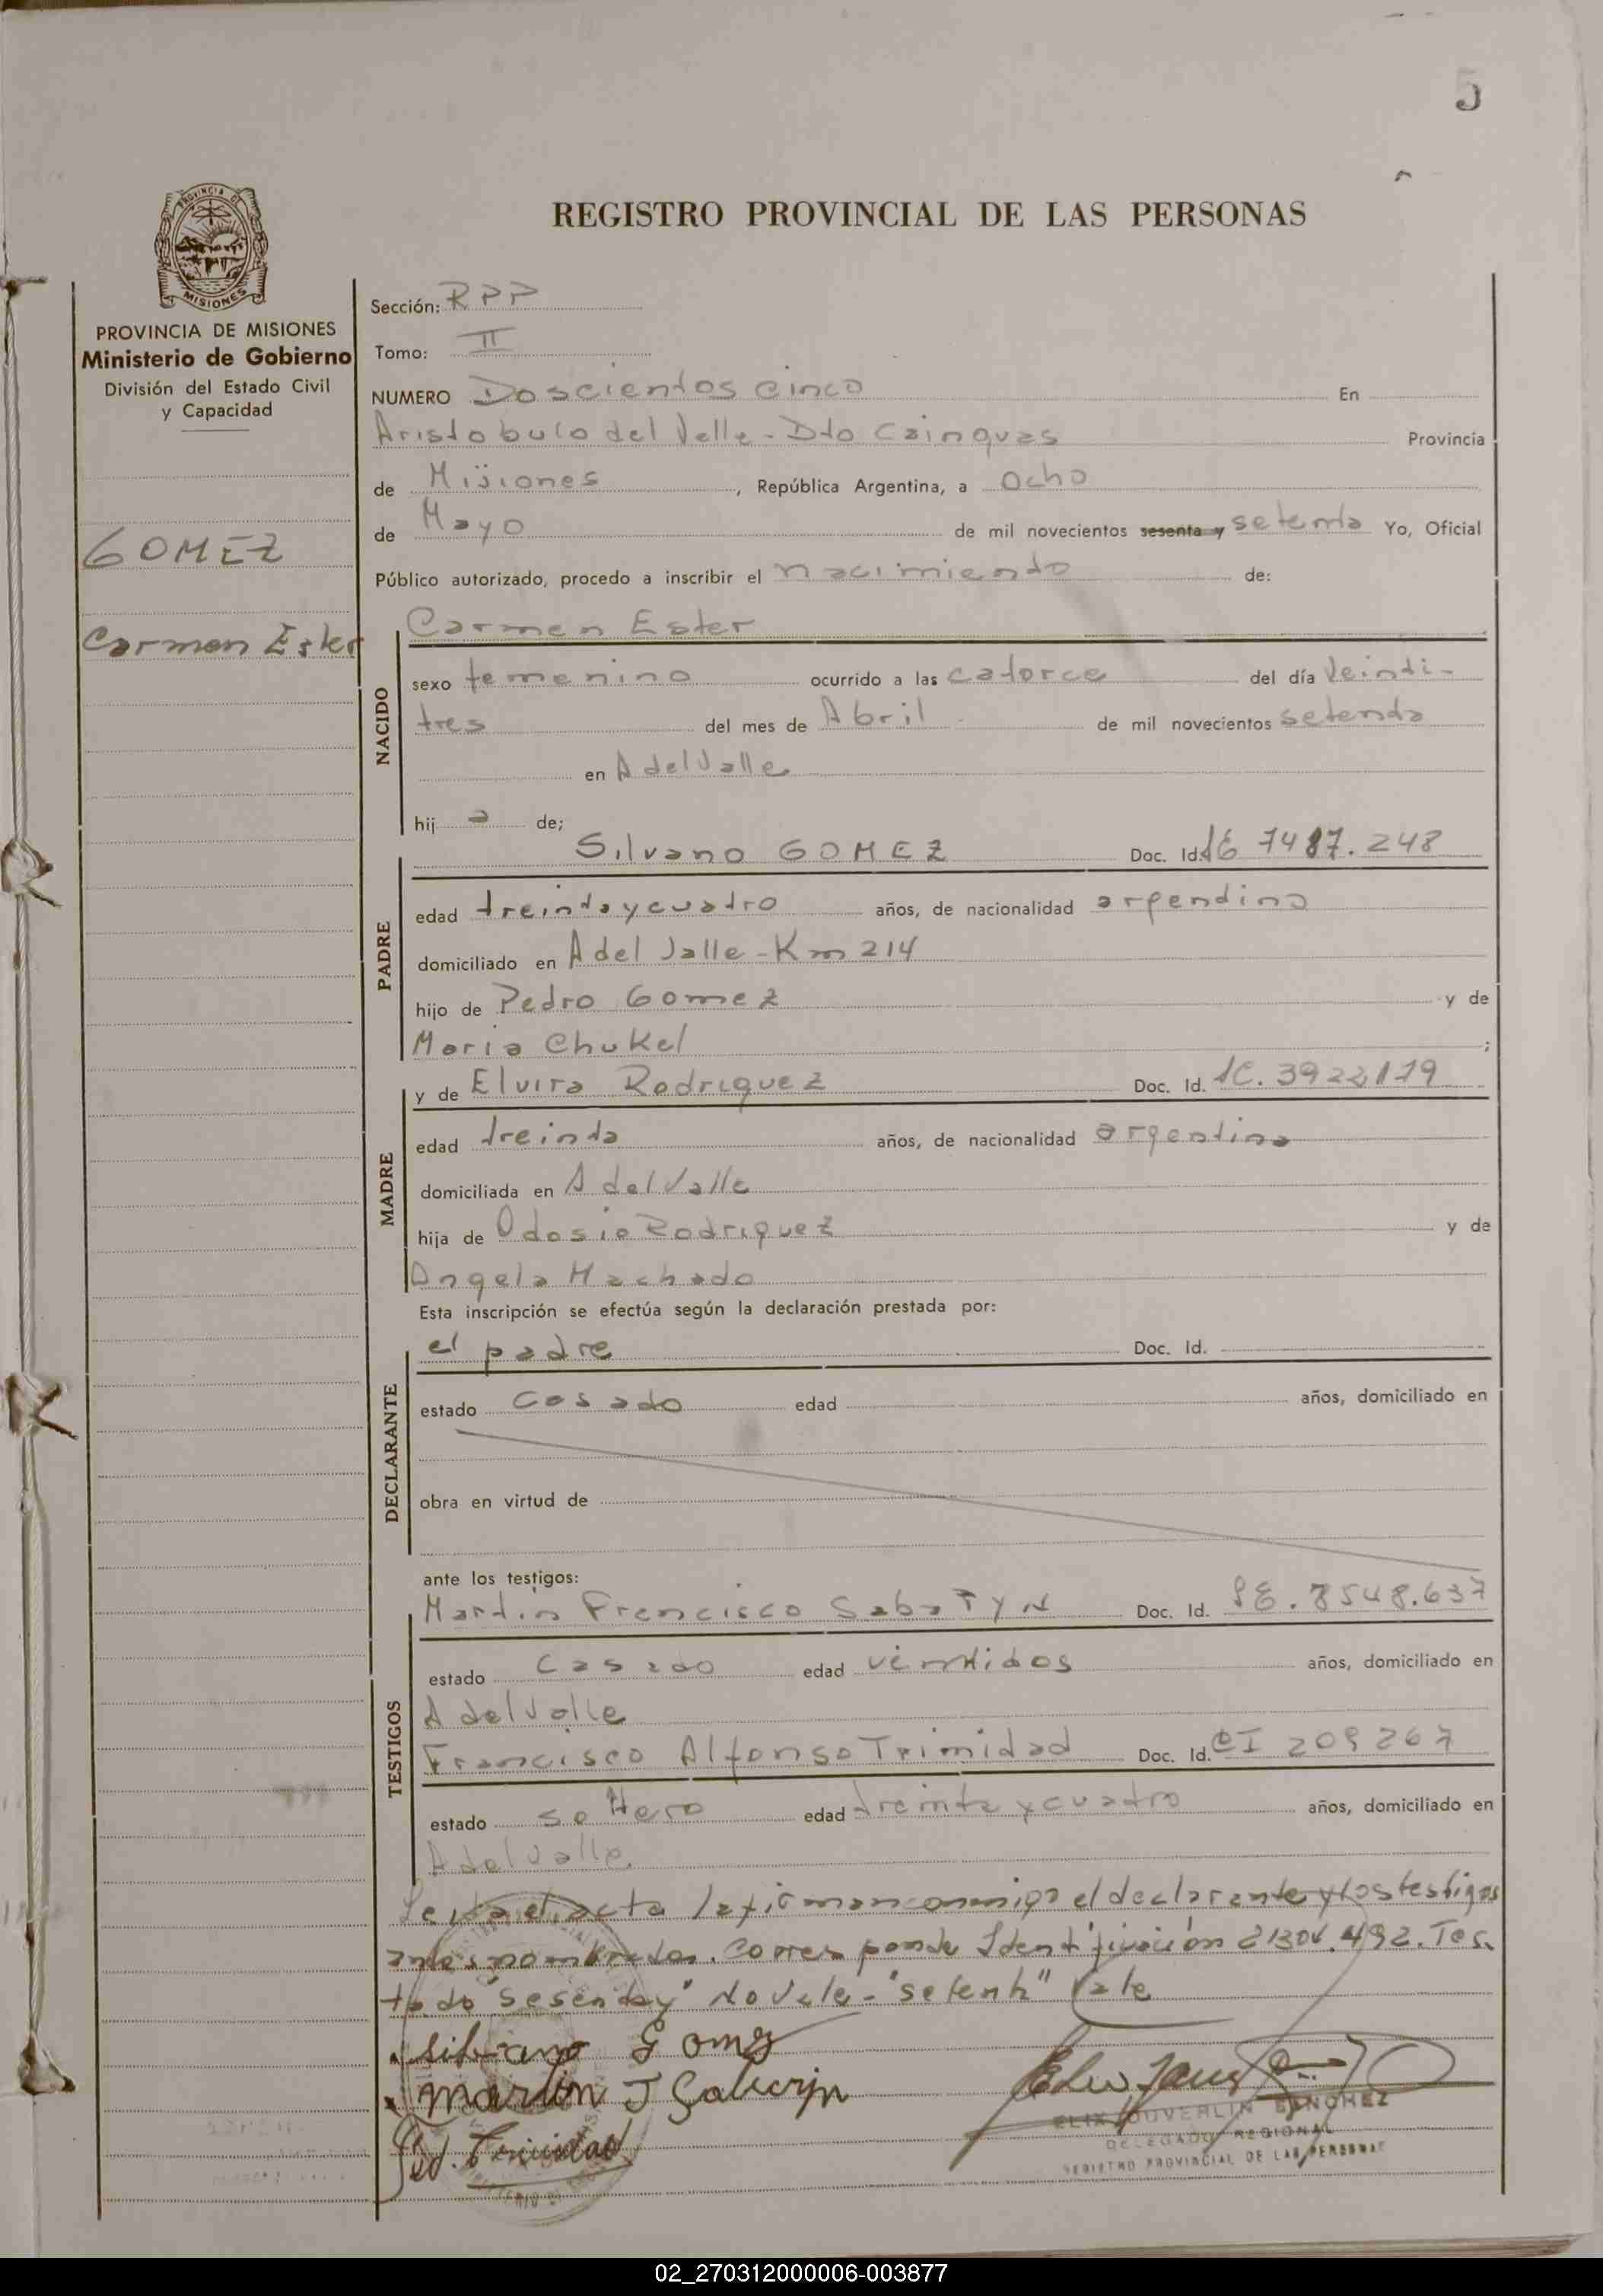 5
PROVINCIA DE
MISIONES
REGISTRO PROVINCIAL DE LAS PERSONAS
PROVINCIA DE MISIONES
Ministerio de Gobierno
División del Estado Civil
y Capacidad
GOMEZ
Carmen Ester
Sección: RPP
Tomo: II
NUMERO Doscientos cinco En
Aristobulo del Valle - Dto Cainguas Provincia
de Misiones, República Argentina, a ocho
de Mayo de mil novecientos sesenta y setenta Yo, Oficial
Público autorizado, procedo a inscribir el nacimiento de:
NACIDO
Carmen Ester
sexo femenino ocurrido a las catorce del día Veinti-
tres del mes de Abril de mil novecientos setenta
en A del Valle
hij a de;
PADRE
Silvano GOMEZ Doc. Id. 7487.248
edad treinta y cuatro años, de nacionalidad argentino
domiciliado en A del Valle - Km 214
hijo de Pedro Gomez y de
Maria Chukel ;
MADRE
y de Elvira Rodriguez Doc. Id. 3922179
edad treinta años, de nacionalidad argentina
domiciliada en A del Valle
hija de Odosio Rodriguez y de
Angela Machado
Esta inscripción se efectúa según la declaración prestada por:
DECLARANTE
el padre Doc. Id.
estado casado edad años, domiciliado en
obra en virtud de
ante los testigos:
TESTIGOS
Martin Francisco Doc. Id. 8548.637
estado casado edad años, domiciliado en
A del Valle
Francisco Alfonso Trinidad Doc. Id. CI 209267
estado soltero edad treinta y cuatro años, domiciliado en
A del Valle
acta la firman conmigo el declarante y los testigos
antes nombrados. Corresponde Identificación 21304.492. Tes.
tado "sesenta y" No Vale - "setenta" Vale
Silvano Gomez
Martin
Trinidad
SANCHEZ
DELEGADO REGIONAL
REGISTRO PROVINCIAL DE LAS PERSONAS
02_270312000006-003877